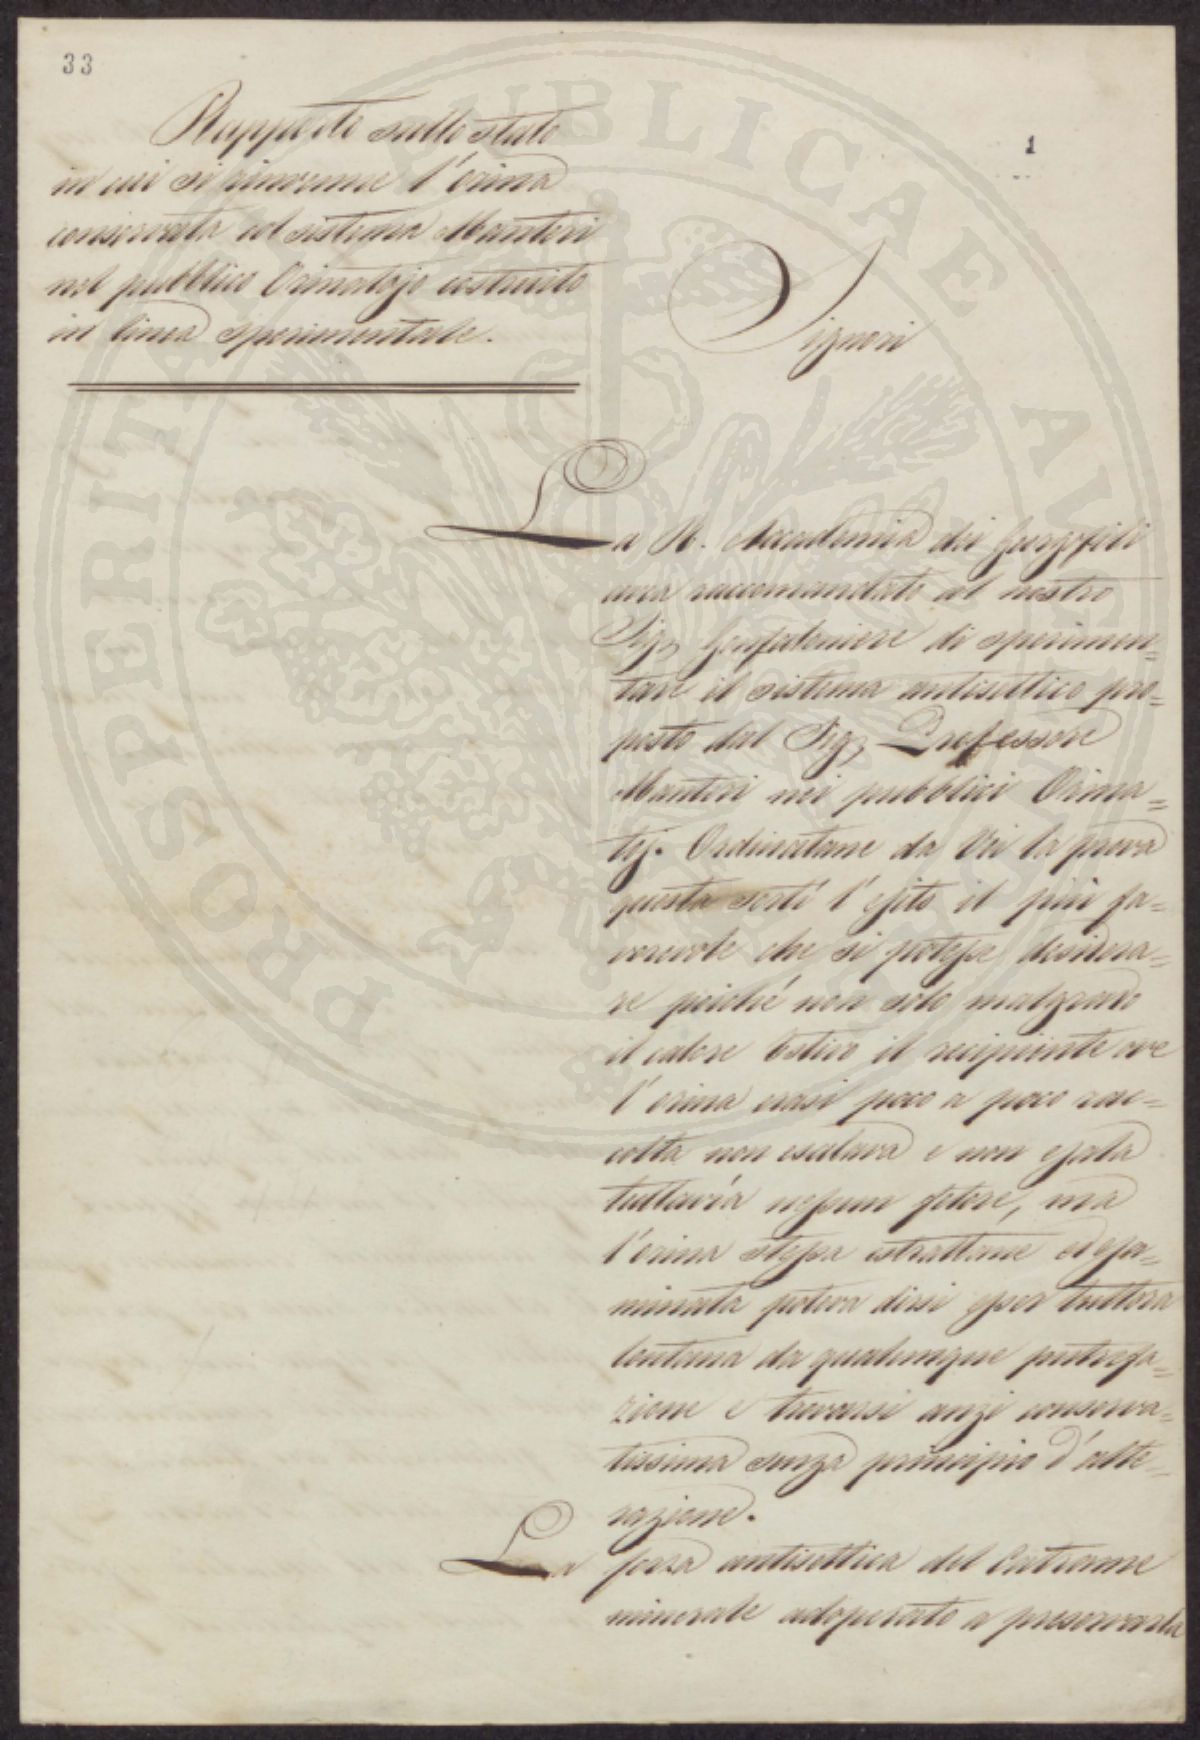 33
1
Rapporto sullo stato
in cui si rinvenne l'orina
conservata col sistema Manteri
nel pubblico Orinatojo costruito
in linea sperimentale.
Signori
La R. Accademia dei Georgofili
avea raccomandato al nostro
Sig. Gonfaloniere di sperimen=
tare il sistema antisettico pro=
posto dal Sig. Professore
Manteri nei pubblici Orina=
toj. Ordinatane da Voi la prova
questa sortì l'esito il più fa=
vorevole che si potesse desidera=
re poichè non solo malgrado
il calore Estivo il recipiente ove
l'orina erasi poco a poco rac=
colta non esalava e non esala
tuttavia nessun fetore, ma
l'orina stessa estrattane ed esa=
minata poteva dirsi esser tuttora
lontana da qualunque putrefa=
zione e trovarsi anzi conserva=
tissima senza principio d'alte=
razione.
La forza antisettica del Catrame
minerale adoperato a preservarla
PROSPERITATI PUBLICAE AUGENDAE